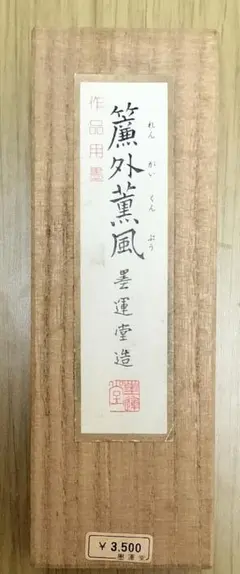 作品用墨
簾外薫風
れんがいくんぷう
墨運堂造
墨運堂
¥3.500
墨運堂